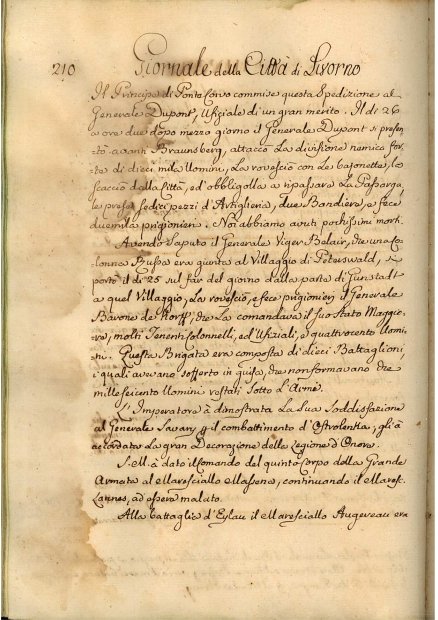 210 Giornale della Città di Livorno
Il Principe di Ponte Corvo commise questa Spedizione al
Generale Dupont, Ufiziale di un gran merito. Il dì 26
a ore due dopo mezzo giorno il Generale Dupont si presen-
tò avanti Braunsberg, attaccò la divisione nemica for-
te di dieci mila Uomini, la rovesciò con le bajonette, lo
scacciò dalla Città, ed obbligolla a ripassare La Passarga,
le prese sedici pezzi d'Artiglieria, due Bandiere, e fece
due mila prigionieri. Noi abbiamo avuti pochissimi morti.
Avendo Saputo il Generale Viger Belair, che una Co-
lonna Russa era giunta al Villaggio di Peterswald, si
portò il dì 25 sul far del giorno dalla parte di Gunstadt
a quel Villaggio, La rovesciò, e fece prigionieri il Generale
Barone de Korff, che La comandava il suo Stato Maggio-
re, molti Tenenti Colonnelli, ed Ufiziali, e quattrocento Uomi-
ni. Questa Brigata era composta di dieci Battaglioni,
i quali avevano sofferto in guisa, che non formavano che
mille seicento Uomini restati Sotto L'Armi.
L'Imperatore à dimostrata La Sua Soddisfazione
al Generale Savary p il combattimento d'Ostrolenka, gli à
accordata La gran Decorazione della Legione d'Onore.
S.M. à dato il Comando del quinto Corpo della Grande
Armata al Maresciallo Massena, continuando il Maresc.
Lannes, ad essere malato.
Alla battaglia d'Eylau il Maresciallo Augereau era